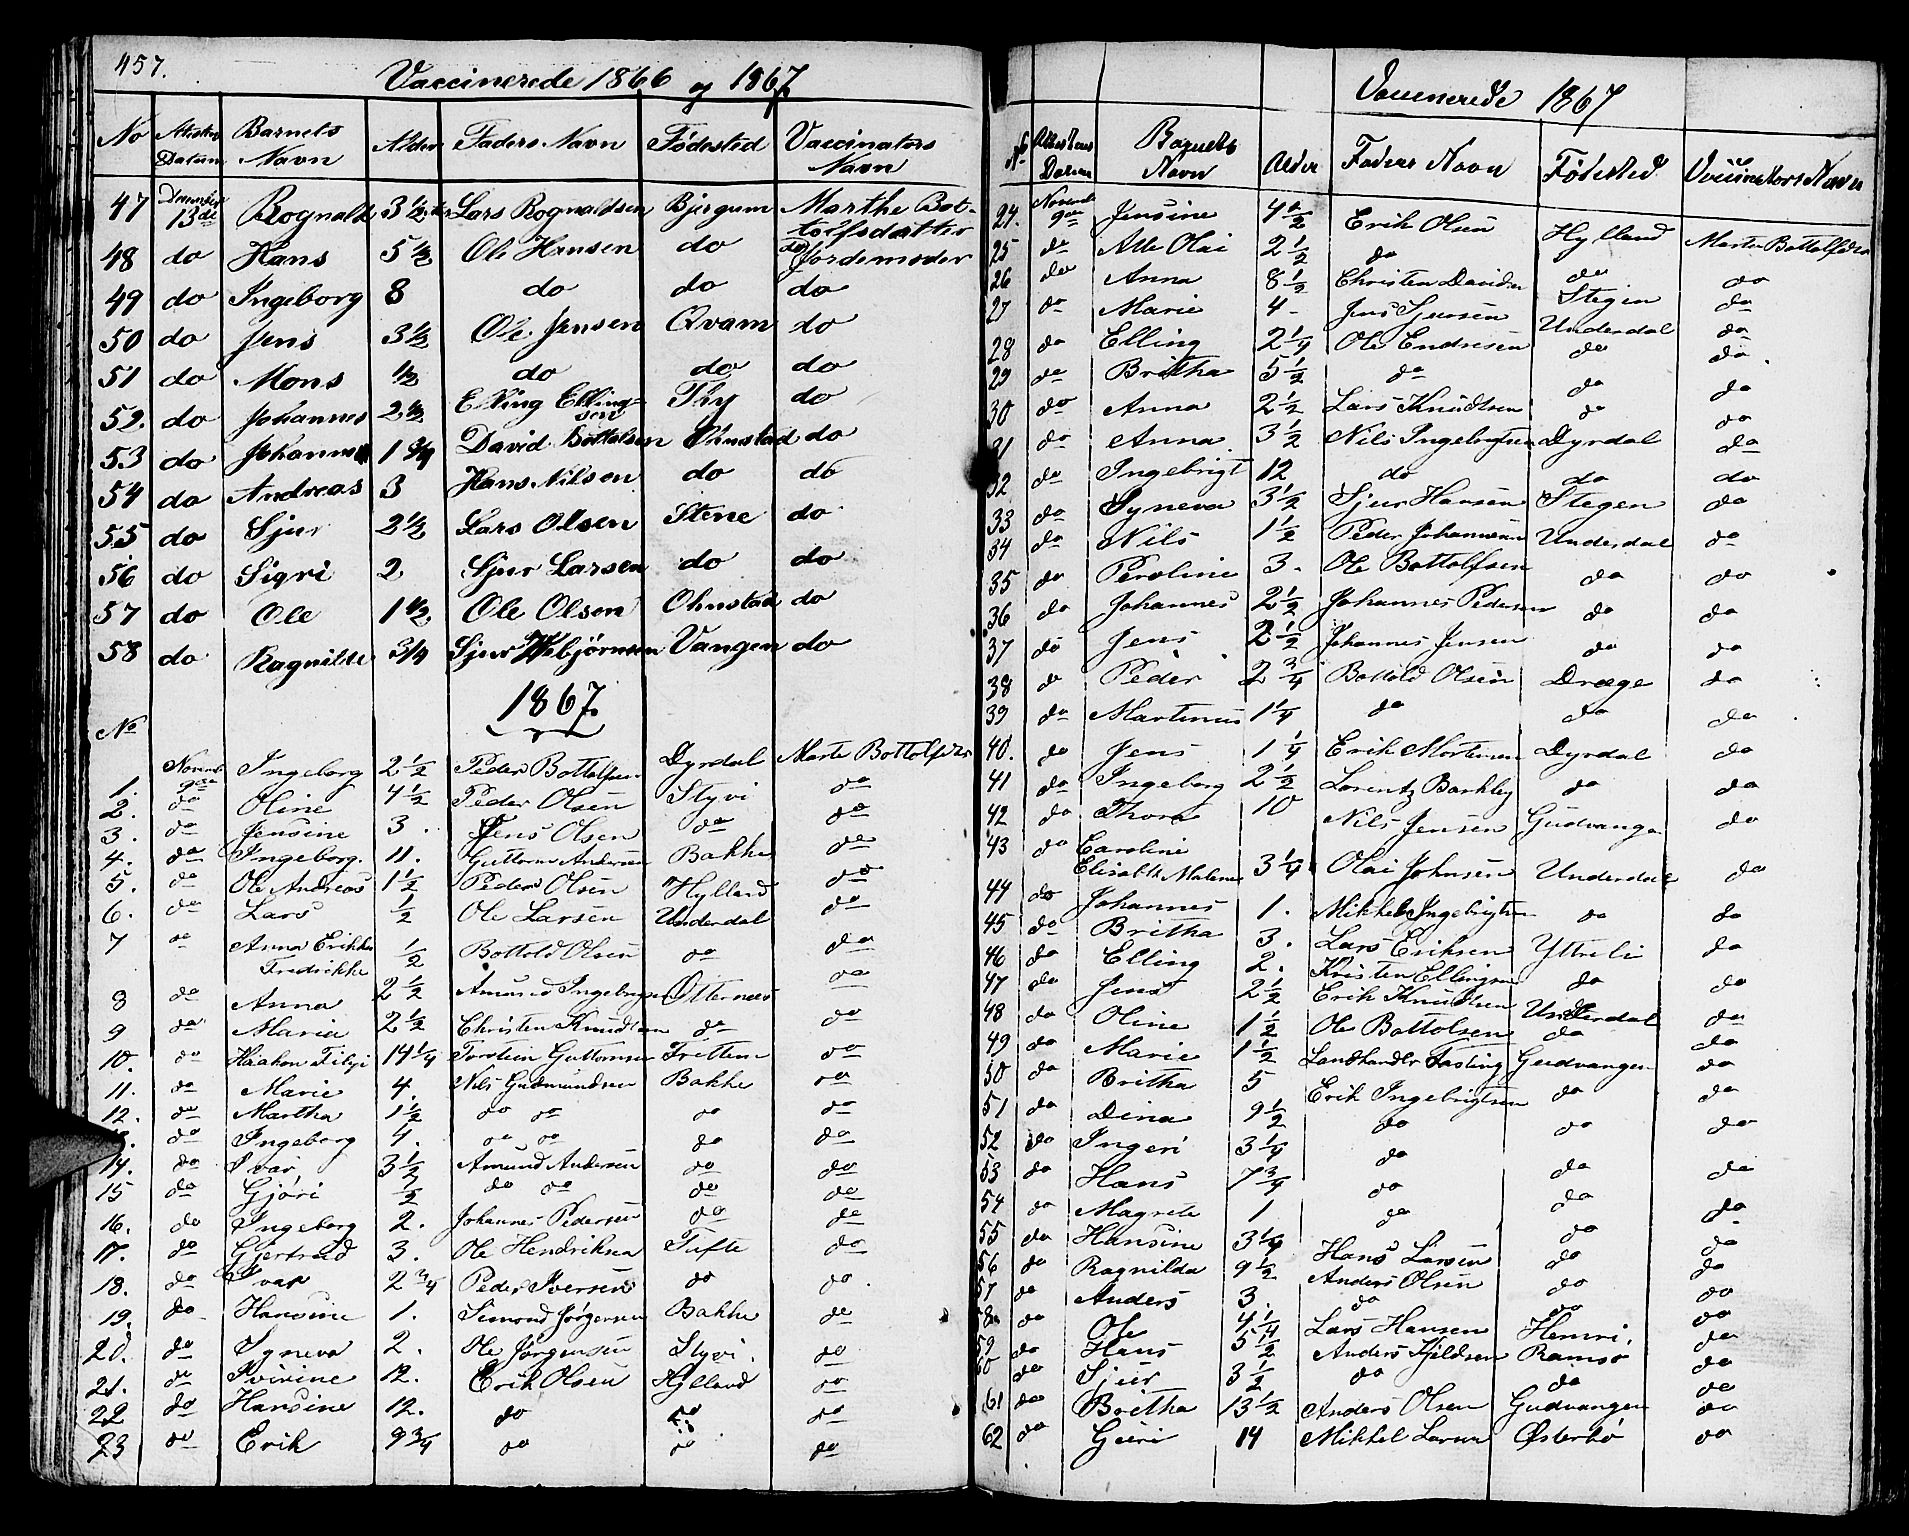 457.
Vaccinerede 1866 og 1867
No Attestens Datum Barnets Navn Alder Faders Navn Fødested Vaccinators Navn
47 December 13de Rognald 3 1/2 Lars Rognaldsen Bjergum Marthe Bottolfsdatter
48 do Hans 5 1/2 Ole Hansen do do Jordemoder
49 do Ingeborg 8 do do do
50 do Jens 3 1/2 Ole Jensen Qvam do
51 do Mons 1/2 do do do
52. do Johannes 2 1/2 Elling Ellingsen Thy do
53 do Johannes 1 3/4 David Bottolsen Ohnstad do
54 do Andreas 3 Hans Nilsen do do
55 do Sjur 2 1/2 Lars Olsen Stene do
56 do Sigri 2 Sjur Larsen do do
57 do Ole 1 1/2 Ole Olsen Ohnstad do
58 do Ragnilde 3/4 Sjur Vebjørnsen Vangen do
1867.
No
1. Novemb 9de Ingeborg 2 1/2 Peder Bottolfsen Dyrdal Marte Bottolfsdr
2. do Oline 4 1/2 Peder Olsen Styvi do
3. do Jensine 3. Jens Olsen do do
4. do Ingeborg. 11. Guttorm Andersen Bakke do
5. do Ole Andreas 1 1/2 Peder Olsen Hylland do
6. do Lars 1/2 Ole Larsen Underdal do
7 do Anna Erikke Fredrikke 1/2 Bottold Olsen do do
8 do Anna 2 1/2 Amund Ingebrigtsen Otternes do
9 do Maria 2 1/2 Christen Knudsen do do
10. do Haakon 14 1/4 Torstein Guttormsen do
11. do Marie 4. Nils Gudmundsen Bakke do
12. do Martha 1 1/2 do do do do
13. do Ingeborg 4. do do do do
14. do Ivar 3 1/2 Amund Andersen do do
15 do Gjøri 1/2 do do do do
16. do Ingeborg 2. Johannes Pedersen do do
17. do Gjertrud 3. Ole Hendriksen Tufte do
18. do Ivar 2 3/4 Peder Iversen do do.
19. do Hansine 1. Simond Jørgensen Bakke do
20. do Syneva 2. Ole Jørgensen Styvi. do
21. do Ivirine 12. Erik Olsen Hylland do
22 do Hansine 12. do do do
23 do Erik 9 3/4 do do do
Vaccinerede 1867
No Attestens Datum Barnets Navn Alder Faders Navn Fødested Vaccinators Navn
24. Novemb 9de Jensine 4 1/2 Erik Olsen Hylland Marte Bottolfsdr
25 do Atle Olai 2 1/2 do do do
26 do Anna 8 1/2 Christen Davidsen Stegen do
27 do Marie 4 - Jens Sjursen Underdal do
28 do Elling 2 1/4 Ole Endresen do do.
29 do Britha 5 1/2 do do do
30 do Anna 2 1/2 Lars Knudtsen do do
31 do Anna 3 1/2 Nils Ingebrigtsen Dyrdal do
32 do Ingebrigt 12 do do do
33 do Syneva 3 1/2 Sjur Hansen Stegen do
34 do Nils 1 1/2 Peder Johannesen Underdal do
35 do Peroline 3. Ole Bottolfsen do do
36 do Johannes 2 1/2 Johannes Pedersen do do
37 do Jens 2 1/2 Johannes Jensen do do
38 do Peder 2 3/4 Bottold Olsen Dræge do
39 do Martinus 1 1/4 do do do
40. do Jens 1 1/4 Erik Mortensen Dyrdal do
41 do Ingeborg 2 1/2 Lorentz Barkley do do
42 do Thora 10 Nils Jensen Gudvangen do
43 do Caroline Elisabth Malene 3 1/4 Olai Johnsen Underdal do
44 do Johannes 1. Mikkel Ingebrigtsen do do
45 do Britha 3. Lars Eriksen Ytreli do
46 do Elling 2. Kristen Ellingsen do do
47 do Jens 2 1/2 Erik Knudtsen Underdal do
48 do Oline 1 1/2 Ole Bottolsen do do
49 do Marie 1 1/2 Landhandler Gudvangen do
50 do Britha 5 Erik Ingebrigtsen do do
51 do Dina 9 1/2 do do do
52 do Ingeri 3 1/4 do do do
53 do Hans 7 3/4 do do do
54 do Magrete 1 do do do
55 do Hansine 3 1/4 Hans Larsen do do
56 do Ragnilda 9 1/2 Anders Olsen do do
57 do Anders 3. do do do
58 do Ole 4 1/4 Lars Hansen Hemri. do
59 do Hans 5 1/2 Anders Kjeldsen Ramsø do
60 do Sjur 3 1/2 do do do
61 do Britha 13 1/2 Anders Olsen Gudvangen do
62 do Gjeri 14 Mikkel Larsen Østerbø do